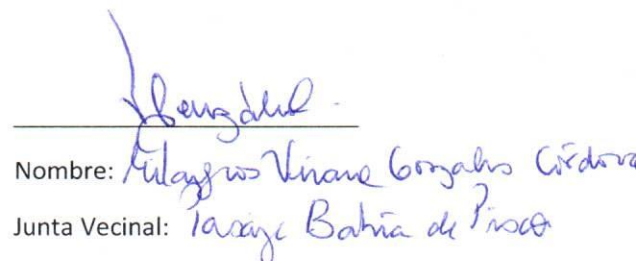 Nombre: Milagros Viviana Gonzales Córdova
Junta Vecinal: Pasaje Bahía de Pisco